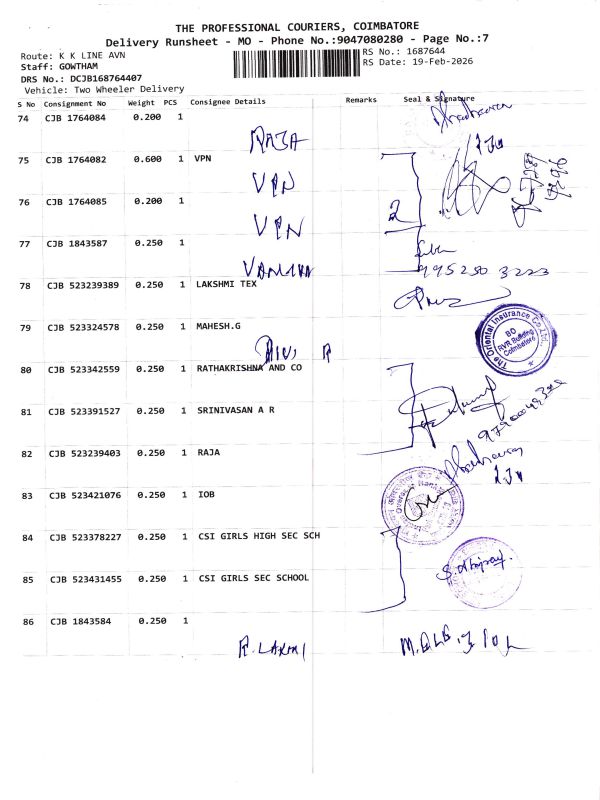 THE PROFESSIONAL COURIERS, COIMBATORE
Delivery Runsheet - MO - Phone No.:9047080280 - Page No.:7
Route: K K LINE AVN
RS No.: 1687644
Staff: GOWTHAM
RS Date: 19-Feb-2026
DRS No.: DCJB168764407
Vehicle: Two Wheeler Delivery
S No Consignment No Weight PCS Consignee Details Remarks Seal & Signature
74 CJB 1764084 0.200 1
RAJA
75 CJB 1764082 0.600 1 VPN
VPN
76 CJB 1764085 0.200 1
2
VPN
77 CJB 1843587 0.250 1
995250 3223
78 CJB 523239389 0.250 1 LAKSHMI TEX
79 CJB 523324578 0.250 1 MAHESH.G
The Oriental Insurance Co. Ltd.
BO
RVR Building
Coimbatore
80 CJB 523342559 0.250 1 RATHAKRISHNA AND CO
81 CJB 523391527 0.250 1 SRINIVASAN A R
82 CJB 523239403 0.250 1 RAJA
83 CJB 523421076 0.250 1 IOB
84 CJB 523378227 0.250 1 CSI GIRLS HIGH SEC SCH
85 CJB 523431455 0.250 1 CSI GIRLS SEC SCHOOL
86 CJB 1843584 0.250 1
R. LAXMI